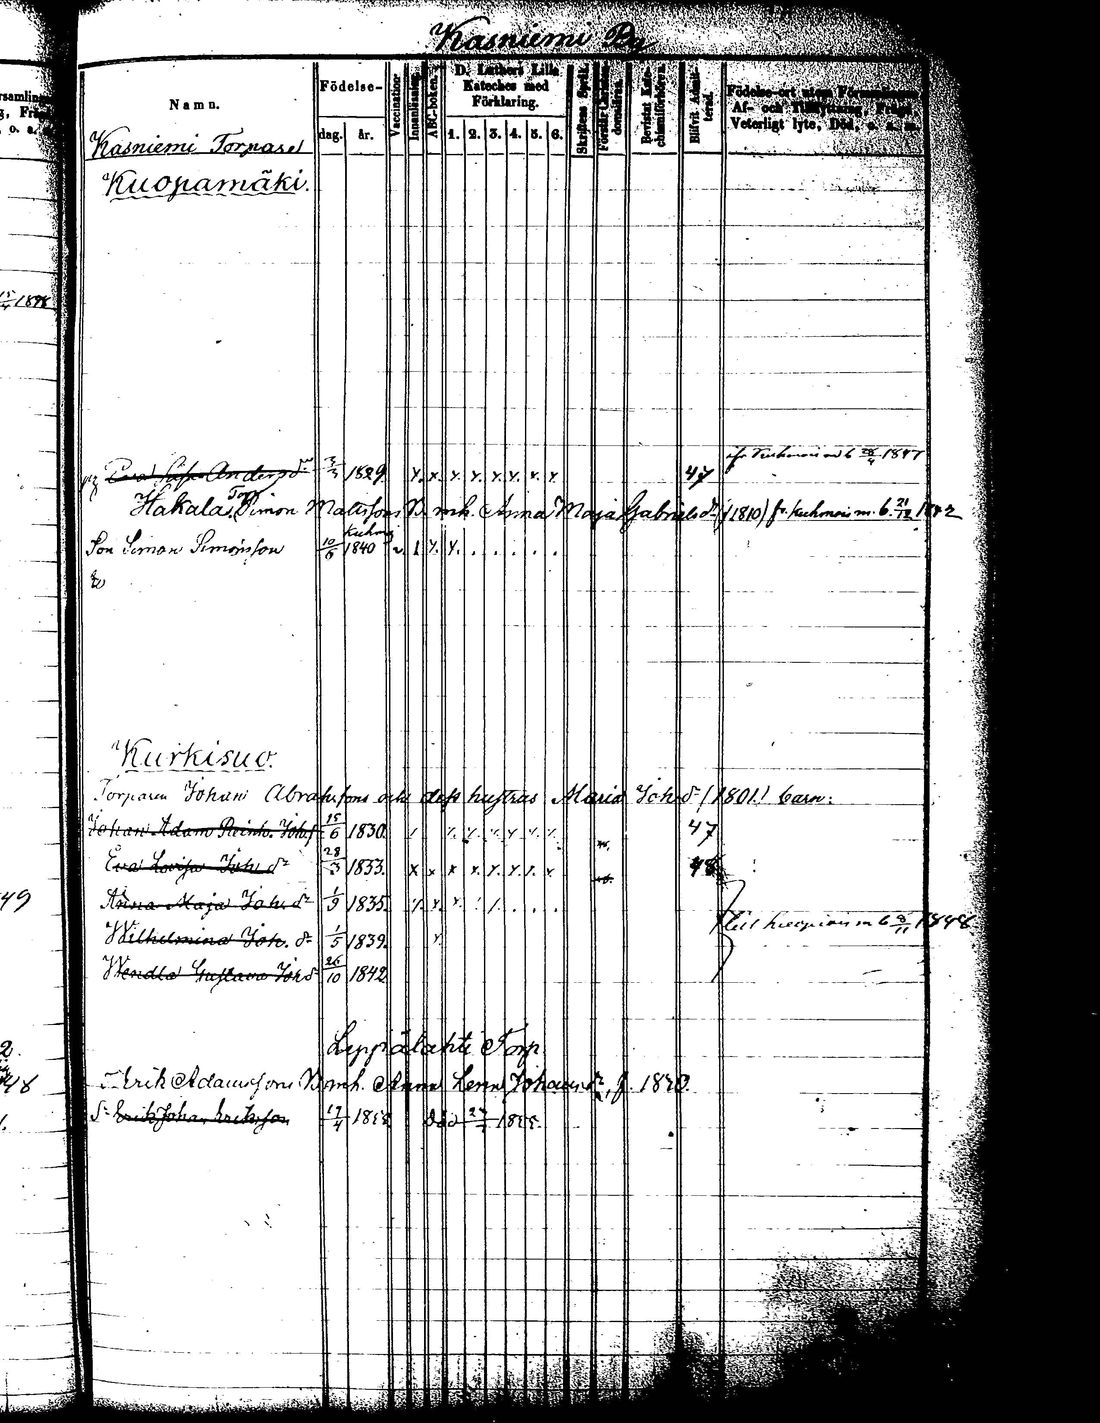 Kasniemi By
Namn.
Födelse-
dag.
år.
Vaccination
Innanläsning.
ABC-boken.
D. Luthers Lilla
Kateches med
Förklaring.
1. 2. 3. 4. 5. 6.
Skriftens Språk.
Förstår Christendomslära.
Bevistat Katechismiförhören.
Blifvit Admitterad.
Födelse-ort utom Församlingen
Af- och Tillflyttning, Frägd
Veterligt lyte, Död, o. s. v.
Kasniemi Torpare
Kuopamäki.
15/4 1848
Andersdr 3/3 1829 x. x. x. x. x. x. x. x. 47 6 1847
Hakala Torp. Simon Mattsons B. m. h. Anna Maja Gabrielsdr (1810) fr. Kuhmois m. b. 21/12 1842
Son Simon Simonsson 10/6 1840 Kuhmois
Kurkisuo.
Torparen Johan Abrahamsons och dess hustrus Maria Joh. dr (1801) barn:
Johan Adam Reinh. Johs 15/6 1830. 47
Eva Lovisa Joh. dr 28/3 1833. x x x x. x. x. x. x. 48
49 Anna Maja Joh. dr 1/9 1835.
till Kuopio m b 8/11 1848
Wilhelmina Joh. dr 1/5 1839.
Wendla Gustava Joh dr 26/10 1842
Leppälahti Torp
Erik Adamsson B. m. h. Anna Lena Johansdr, f. 1820.
S. Erik Johan Eriksson 17/4 Död